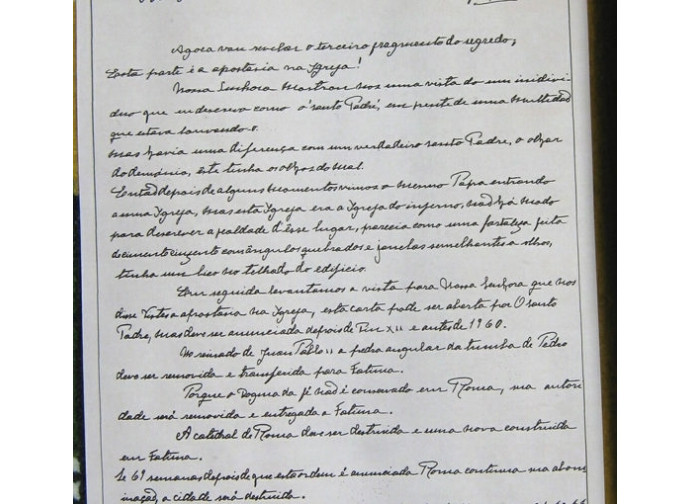 Agora vou revelar o terceiro fragmento do segredo;
Esta parte é a apostasia na Igreja!
Nossa Senhora mostrou-nos uma vista do um individ
duo que eu descrevo como o 'santo Padre', em frente de uma multidão
que estava louvando-o.
Mas havia uma diferença com um verdadeiro santo Padre, o olhar
do demonio, este tinha os olhos do mal.
Então depois de alguns momentos vimos o mesmo Papa entrando
a uma Igreja, mas esta Igreja era a Igreja do inferno, não há modo
para descrever a fealdade d'êsse lugar, parecia como uma fortaleza feita
de cimento cinzento com ângulos quebrados e janelas semelhantes a olhos,
tinha um bico no telhado do edificio.
Em seguida levantamos a vista para Nossa Senhora que nos
disse Vistes a apostasia na Igreja, esta carta pode ser aberta por O santo
Padre, mas deve ser anunciada depois de Pio XII e antes de 1960.
No reinado de Juan Pablo II a pedra angular da tumba de Pedro
deve ser removida e transferida para Fatima.
Porque o dogma da fé não é conservado em Roma, sua autori
dade será removida e entregada a Fatima.
A catedral de Roma deve ser destruida e uma nova construida
em Fatima.
Se 69 semanas depois de que esta ordem é anunciada Roma continua sua abom
inação, a cidade será destruida.